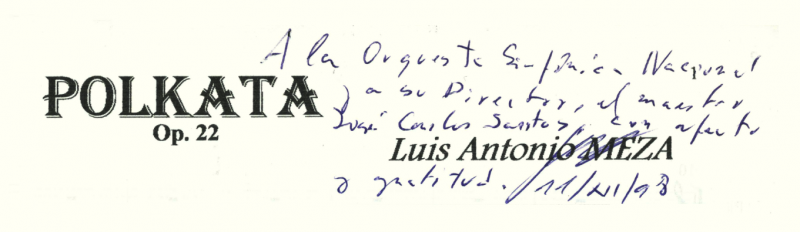 A la Orquesta Sinfónica Nacional
y a su Director, el maestro
POLKATA
José Carlos Santos, con afecto
Op. 22
Luis Antonio MEZA
y gratitud. 11/XI/98